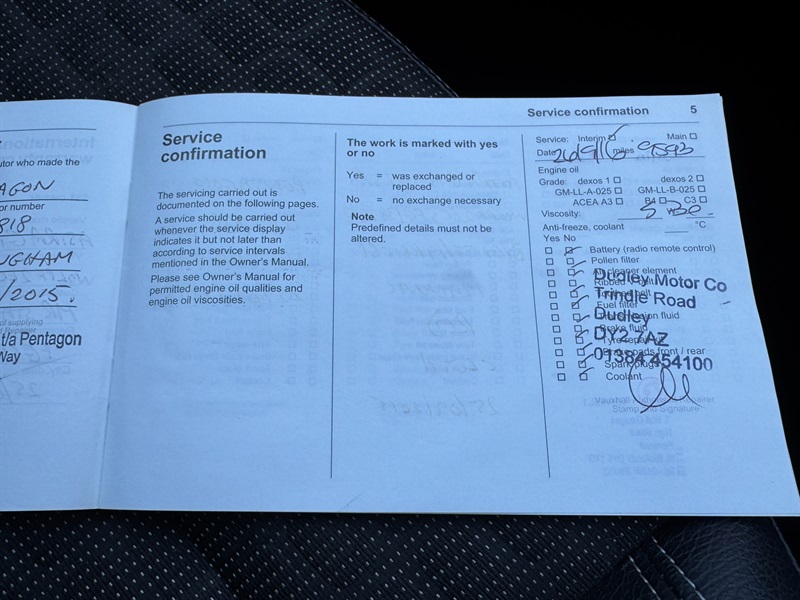 utor who made the
AGON
or number
818
NGHAM
/2015.
of supplying
t/a Pentagon
Way
Service confirmation 5
Service
confirmation
The servicing carried out is
documented on the following pages.
A service should be carried out
whenever the service display
indicates it but not later than
according to service intervals
mentioned in the Owner's Manual.
Please see Owner's Manual for
permitted engine oil qualities and
engine oil viscosities.
The work is marked with yes
or no
Yes = was exchanged or
replaced
No = no exchange necessary
Note
Predefined details must not be
altered.
Service: Interim Main
Date 26/9/16 miles 9593
Engine oil
Grade: dexos 1 dexos 2
GM-LL-A-025 GM-LL-B-025
ACEA A3 B4 C3
Viscosity: 5w30
Anti-freeze, coolant °C
Yes No
Battery (radio remote control)
Pollen filter
Air cleaner element
Dudley Motor Co
Trindle Road
Fuel filter
Dudley
Brake fluid
DY2 7AZ
Brake pads front / rear
01384 454100
Spark plugs
Coolant
Stamp and Signature